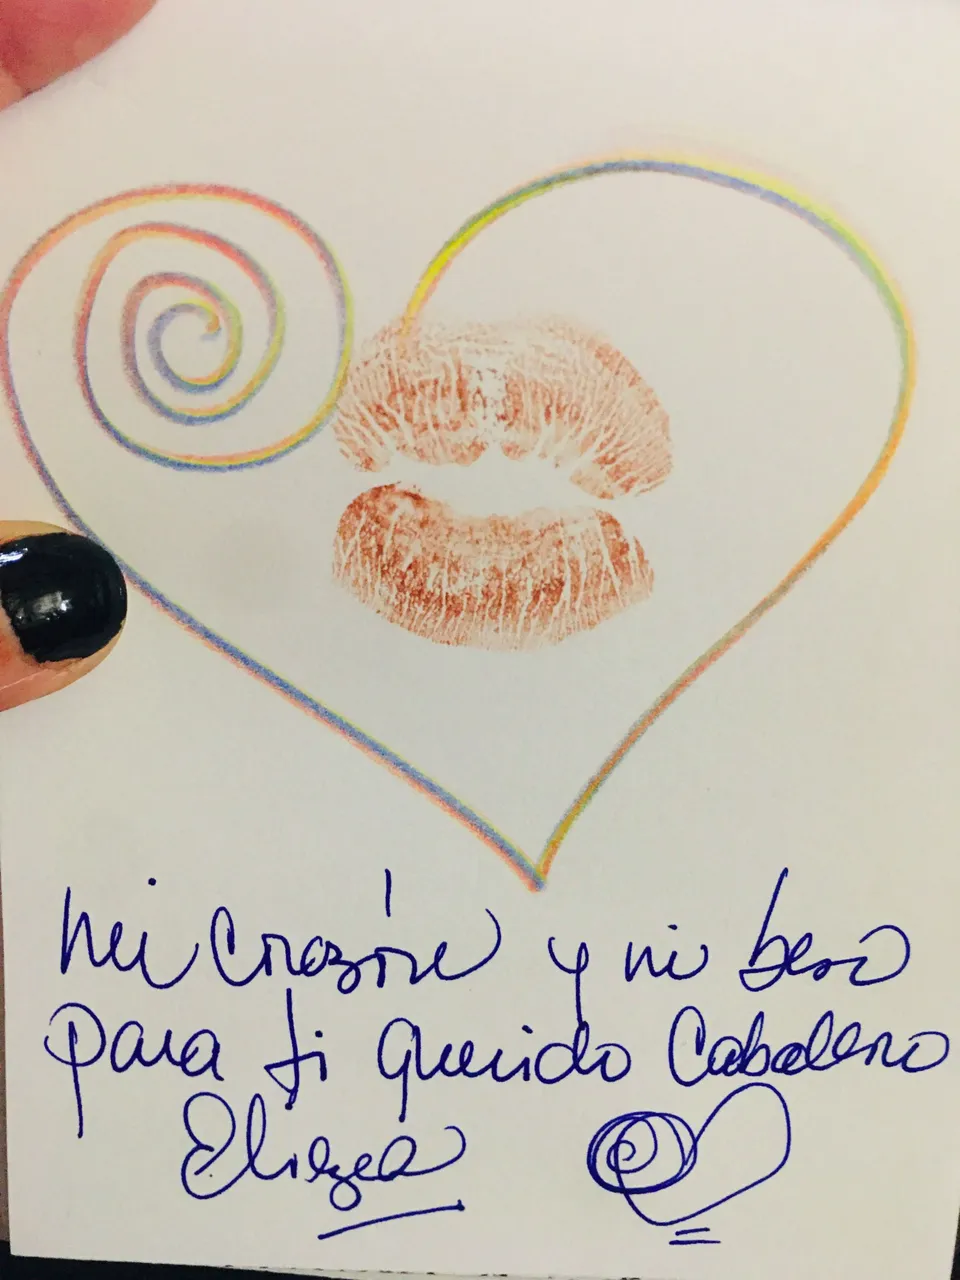 Mi Corazón y mi beso
para ti querido Caballero